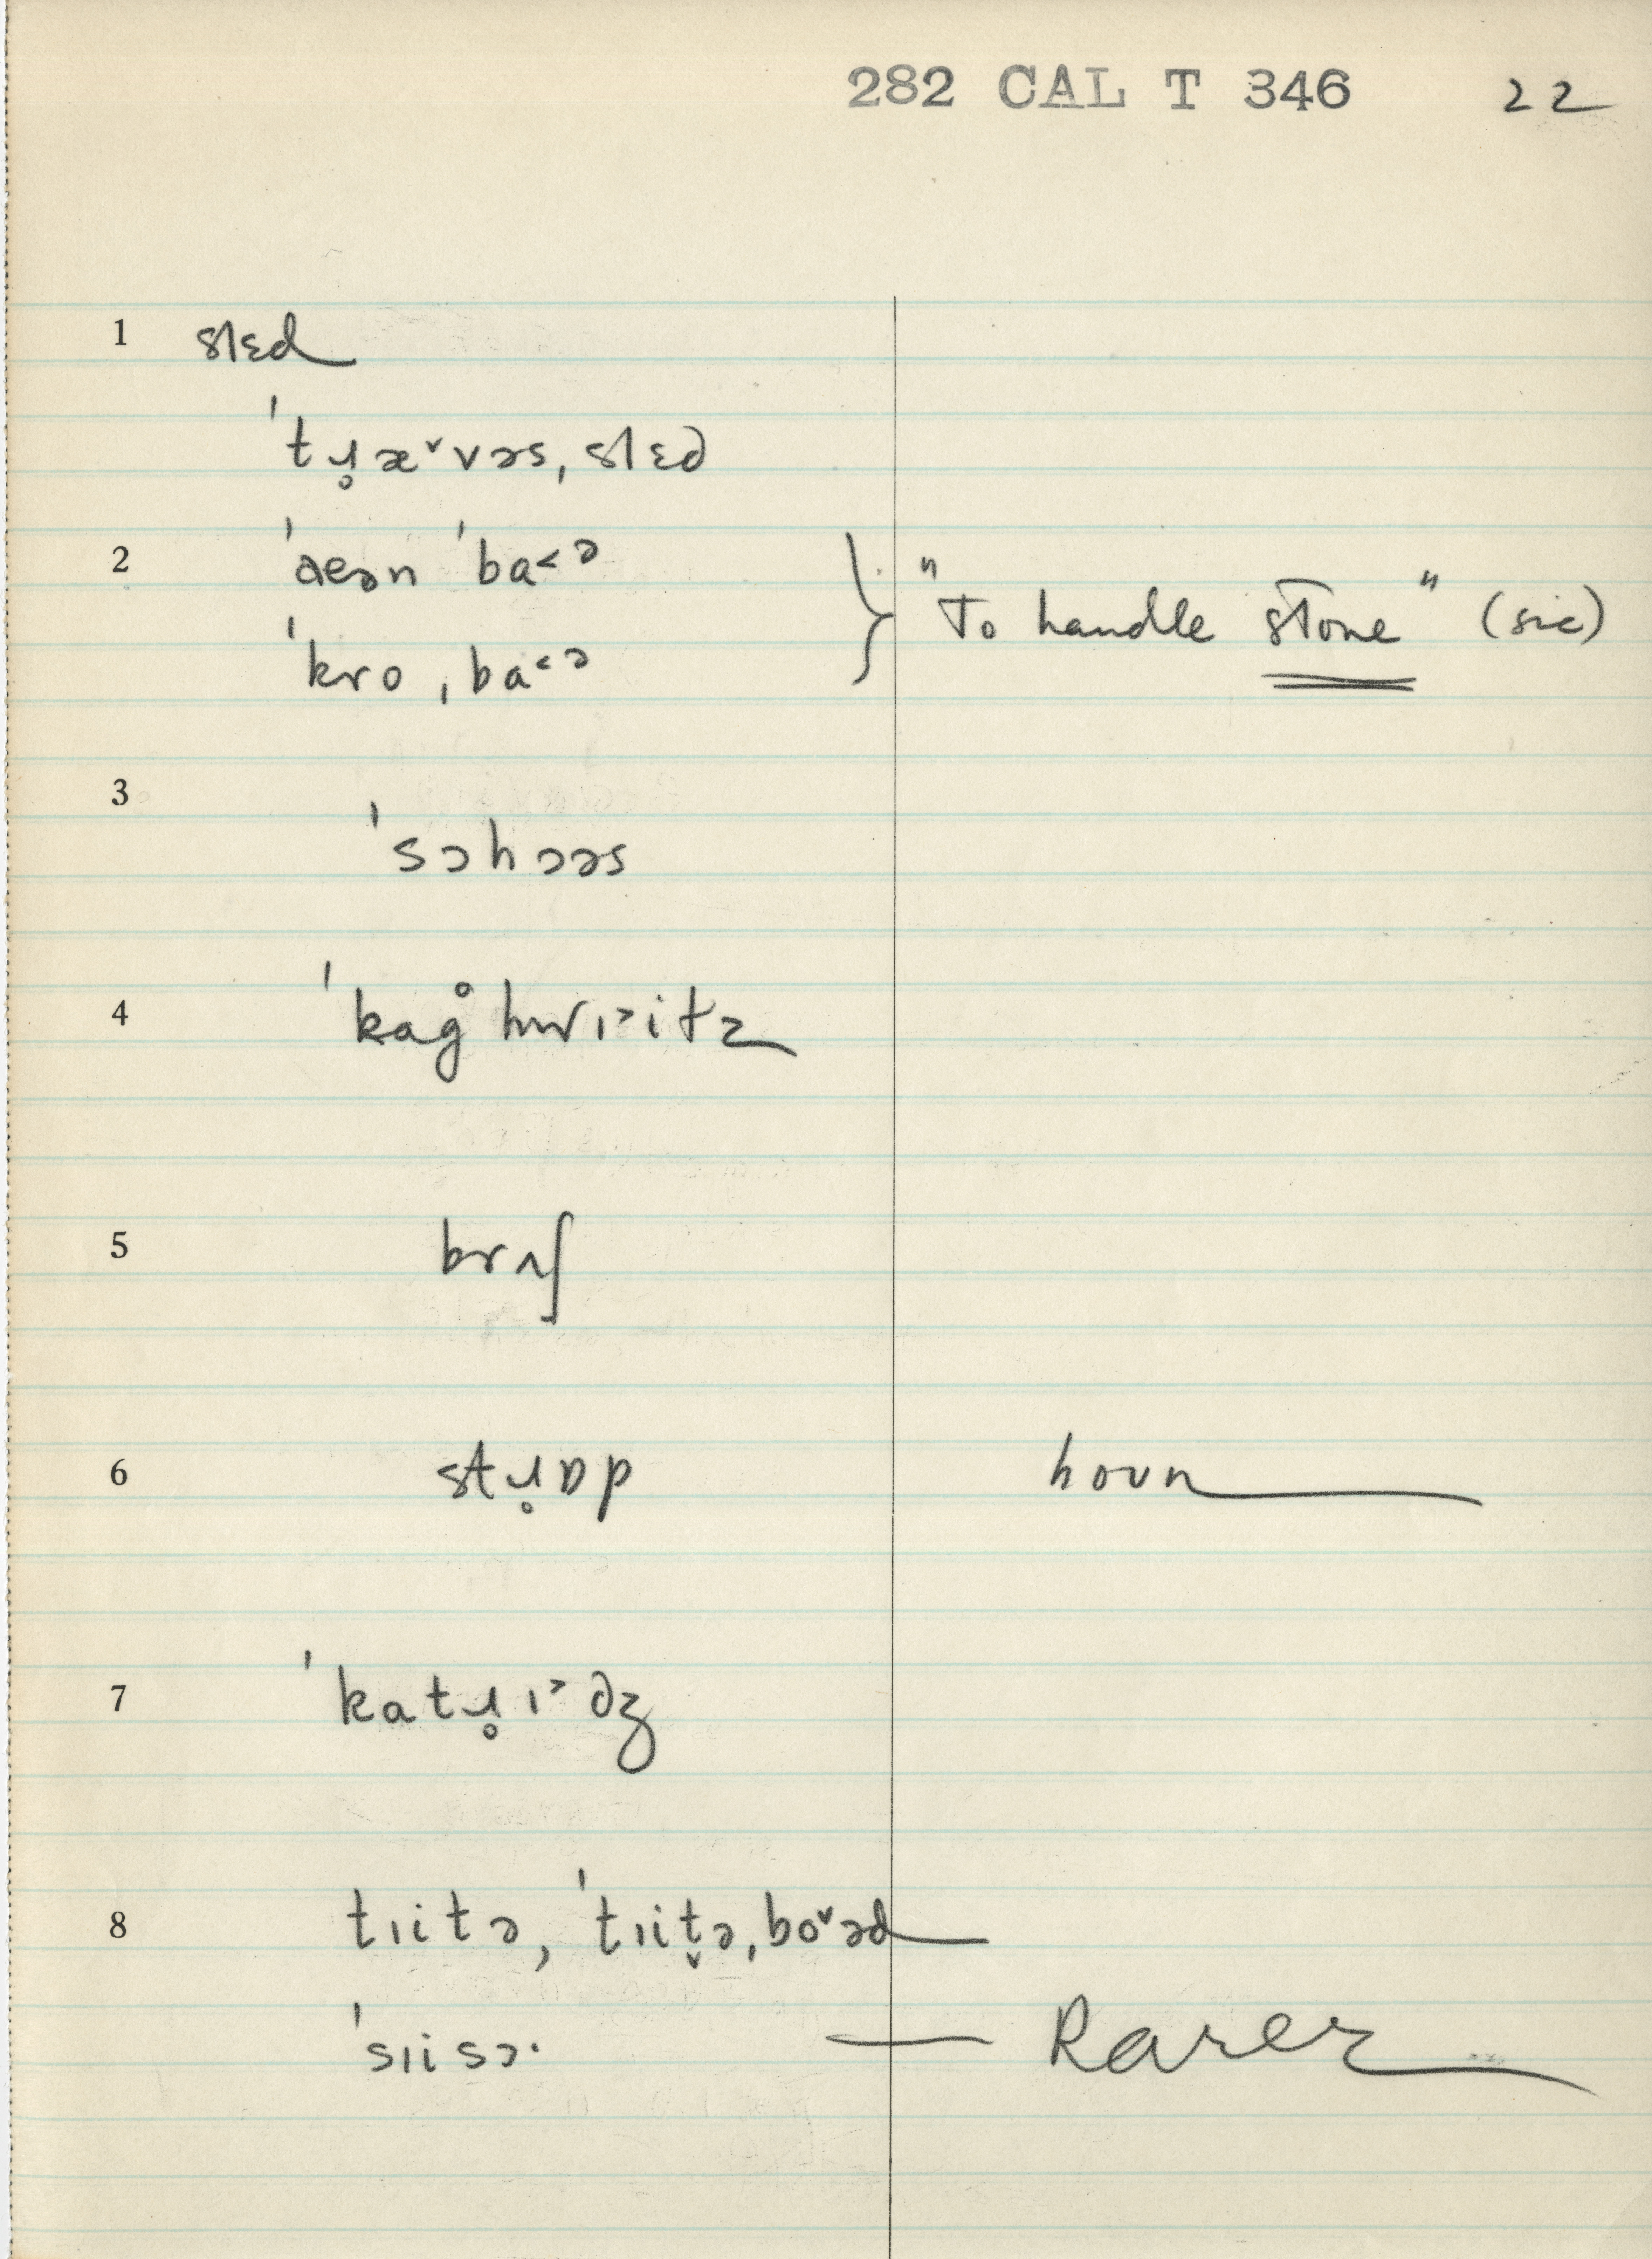 282 CAL T 346 22
1 slɛd
ˈtɹ̥æ˅vəsˌslɛd
2 ˈaeən ˈba˂ə
ˈkroˌba˂ə
"To handle stone" (sic)
3 ˈsɔhɔəs
4 ˈkag̊hwɪ˃itz
5 brʌʃ
6 stɹ̥ɒp houn
7 ˈkatɹ̥ɪ˃dʒ
8 tɪitə, ˈtɪit̬əˌbo˅əd
ˈsɪisɔ· — Rarer